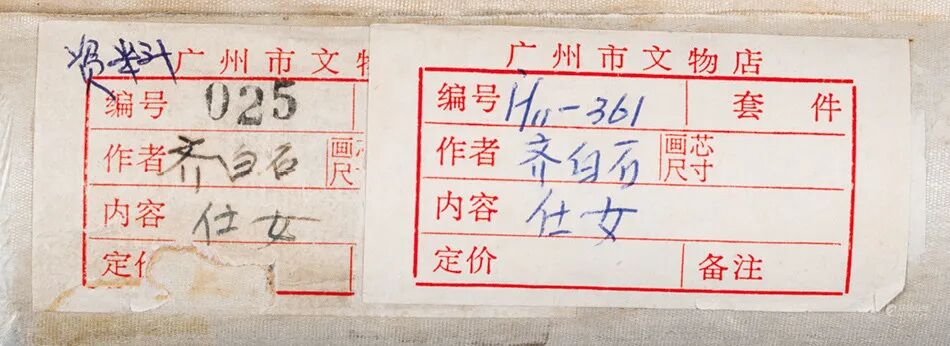 资料
广州市文物
编号 025
作者 齐白石 画芯尺寸
内容 仕女
定价
广州市文物店
编号 Hu-361 套 件
作者 齐白石 画芯尺寸
内容 仕女
定价 备注